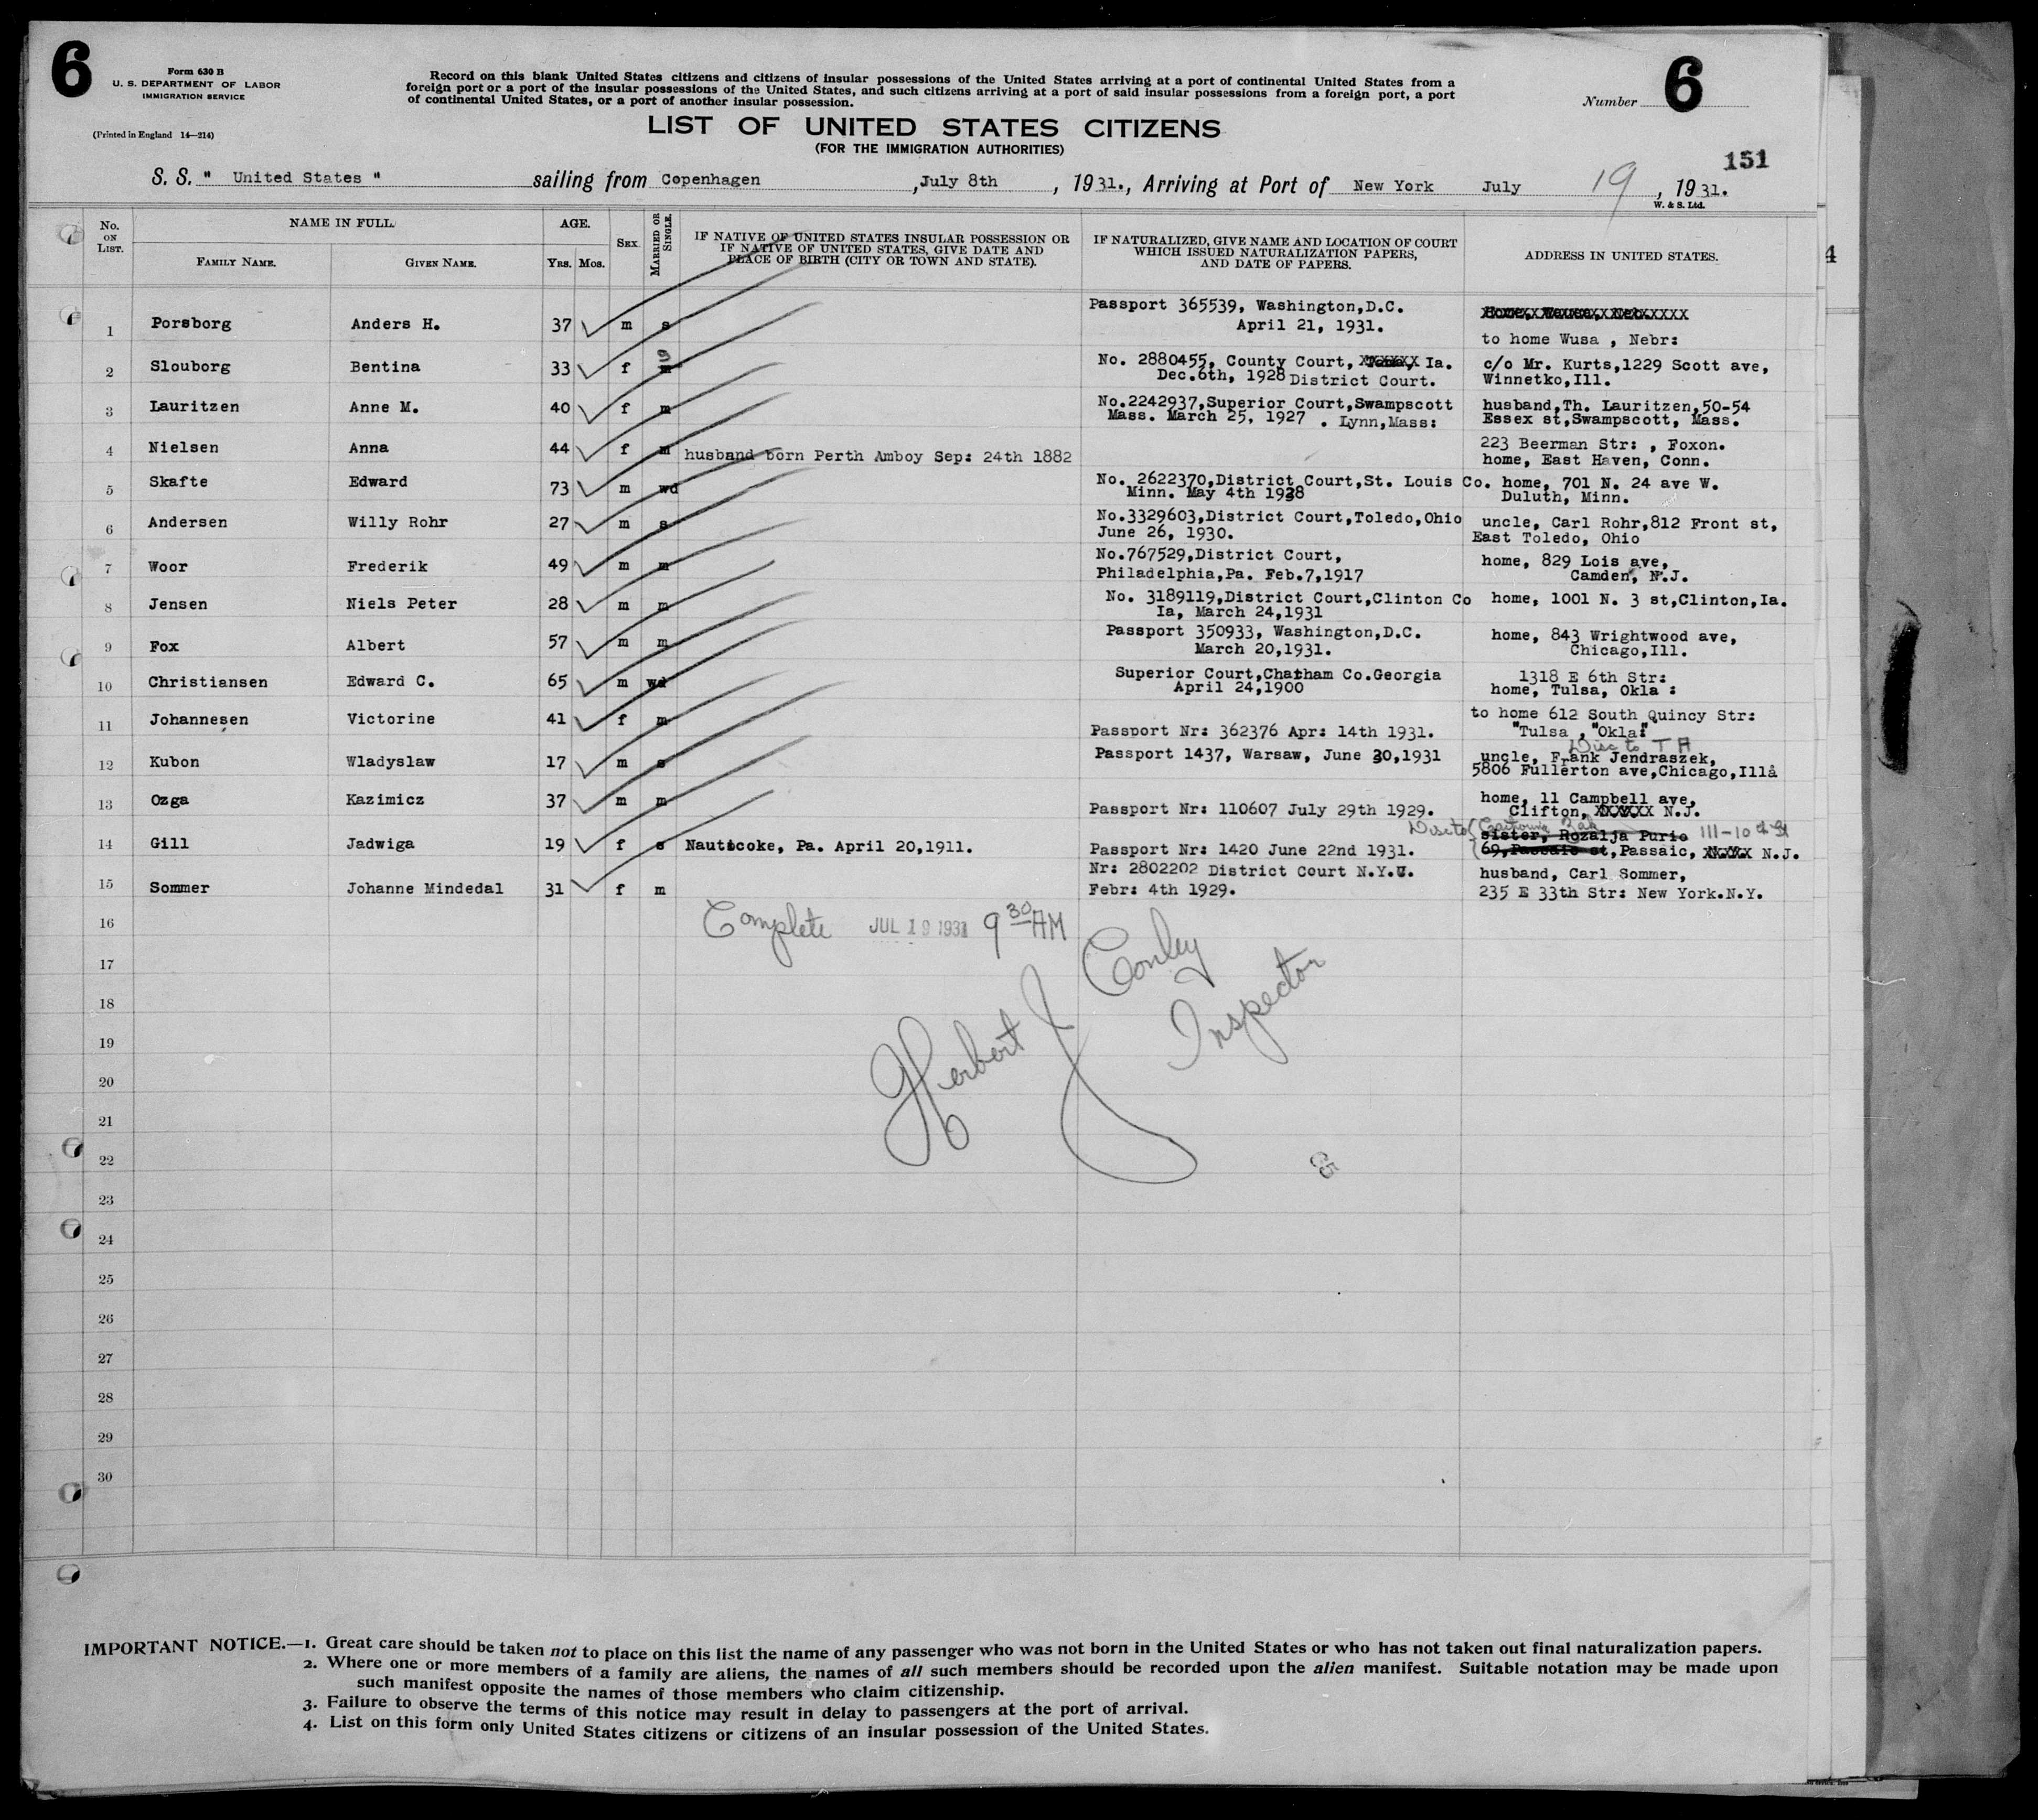 6
Form 630 B
U. S. DEPARTMENT OF LABOR
IMMIGRATION SERVICE
(Printed in England 14—214)
Record on this blank United States citizens and citizens of insular possessions of the United States arriving at a port of continental United States from a
foreign port or a port of the insular possessions of the United States, and such citizens arriving at a port of said insular possessions from a foreign port, a port
of continental United States, or a port of another insular possession.
Number 6
LIST OF UNITED STATES CITIZENS
(FOR THE IMMIGRATION AUTHORITIES)
151
S. S. " United States " sailing from Copenhagen , July 8th , 1931., Arriving at Port of New York July 19, 1931.
W. & S. Ltd.
No. ON LIST. NAME IN FULL FAMILY NAME. GIVEN NAME. AGE. YRS. MOS. SEX MARRIED OR SINGLE. IF NATIVE OF UNITED STATES INSULAR POSSESSION OR IF NATIVE OF UNITED STATES, GIVE DATE AND PLACE OF BIRTH (CITY OR TOWN AND STATE). IF NATURALIZED, GIVE NAME AND LOCATION OF COURT WHICH ISSUED NATURALIZATION PAPERS, AND DATE OF PAPERS. ADDRESS IN UNITED STATES.
4
1 Porsborg Anders H. 37 m s Passport 365539, Washington,D.C.
April 21, 1931.
to home Wusa , Nebr:
2 Slouborg Bentina 33 f s No. 2880455, County Court, Ia. c/o Mr. Kurts,1229 Scott ave,
Dec.6th, 1928 District Court. Winnetko,Ill.
3 Lauritzen Anne M. 40 f m No.2242937,Superior Court,Swampscott husband,Th. Lauritzen,50-54
Mass. March 25, 1927 . Lynn,Mass: Essex st,Swampscott, Mass.
4 Nielsen Anna 44 f m husband born Perth Amboy Sep: 24th 1882 223 Beerman Str: , Foxon.
home, East Haven, Conn.
5 Skafte Edward 73 m wd No. 2622370,District Court,St. Louis Co. home, 701 N. 24 ave W.
Minn. May 4th 1928 Duluth, Minn.
6 Andersen Willy Rohr 27 m s No.3329603,District Court,Toledo,Ohio uncle, Carl Rohr,812 Front st,
June 26, 1930. East Toledo, Ohio
7 Woor Frederik 49 m m No.767529,District Court, home, 829 Lois ave,
Philadelphia,Pa. Feb.7,1917 Camden, N.J.
8 Jensen Niels Peter 28 m m No. 3189119,District Court,Clinton Co home, 1001 N. 3 st,Clinton,Ia.
Ia, March 24,1931
9 Fox Albert 57 m m Passport 350933, Washington,D.C. home, 843 Wrightwood ave,
March 20,1931. Chicago,Ill.
10 Christiansen Edward C. 65 m wd Superior Court,Chatham Co.Georgia 1318 E 6th Str:
April 24,1900 home, Tulsa, Okla :
11 Johannesen Victorine 41 f m Passport Nr: 362376 Apr: 14th 1931. to home 612 South Quincy Str:
"Tulsa , "Okla:"
Disc to T A
12 Kubon Wladyslaw 17 m s Passport 1437, Warsaw, June 30,1931 uncle, Frank Jendraszek,
5806 Fullerton ave,Chicago,Illå
13 Ozga Kazimicz 37 m m Passport Nr: 110607 July 29th 1929. home, 11 Campbell ave,
Clifton, XXXXXX N.J.
Disc to
14 Gill Jadwiga 19 f s Nauticoke, Pa. April 20,1911. Passport Nr: 1420 June 22nd 1931. sister, Rozalja Purio 111-10
69,Passaic st,Passaic, XXXXX N.J.
15 Sommer Johanne Mindedal 31 f m Nr: 2802202 District Court N.Y.U. husband, Carl Sommer,
Febr: 4th 1929. 235 E 33th Str: New York.N.Y.
16
Complete JUL 19 1931 9 30 AM
Herbert J Conley
Inspector
17
18
19
20
21
22
23
24
25
26
27
28
29
30
IMPORTANT NOTICE.—1. Great care should be taken not to place on this list the name of any passenger who was not born in the United States or who has not taken out final naturalization papers.
2. Where one or more members of a family are aliens, the names of all such members should be recorded upon the alien manifest. Suitable notation may be made upon
such manifest opposite the names of those members who claim citizenship.
3. Failure to observe the terms of this notice may result in delay to passengers at the port of arrival.
4. List on this form only United States citizens or citizens of an insular possession of the United States.